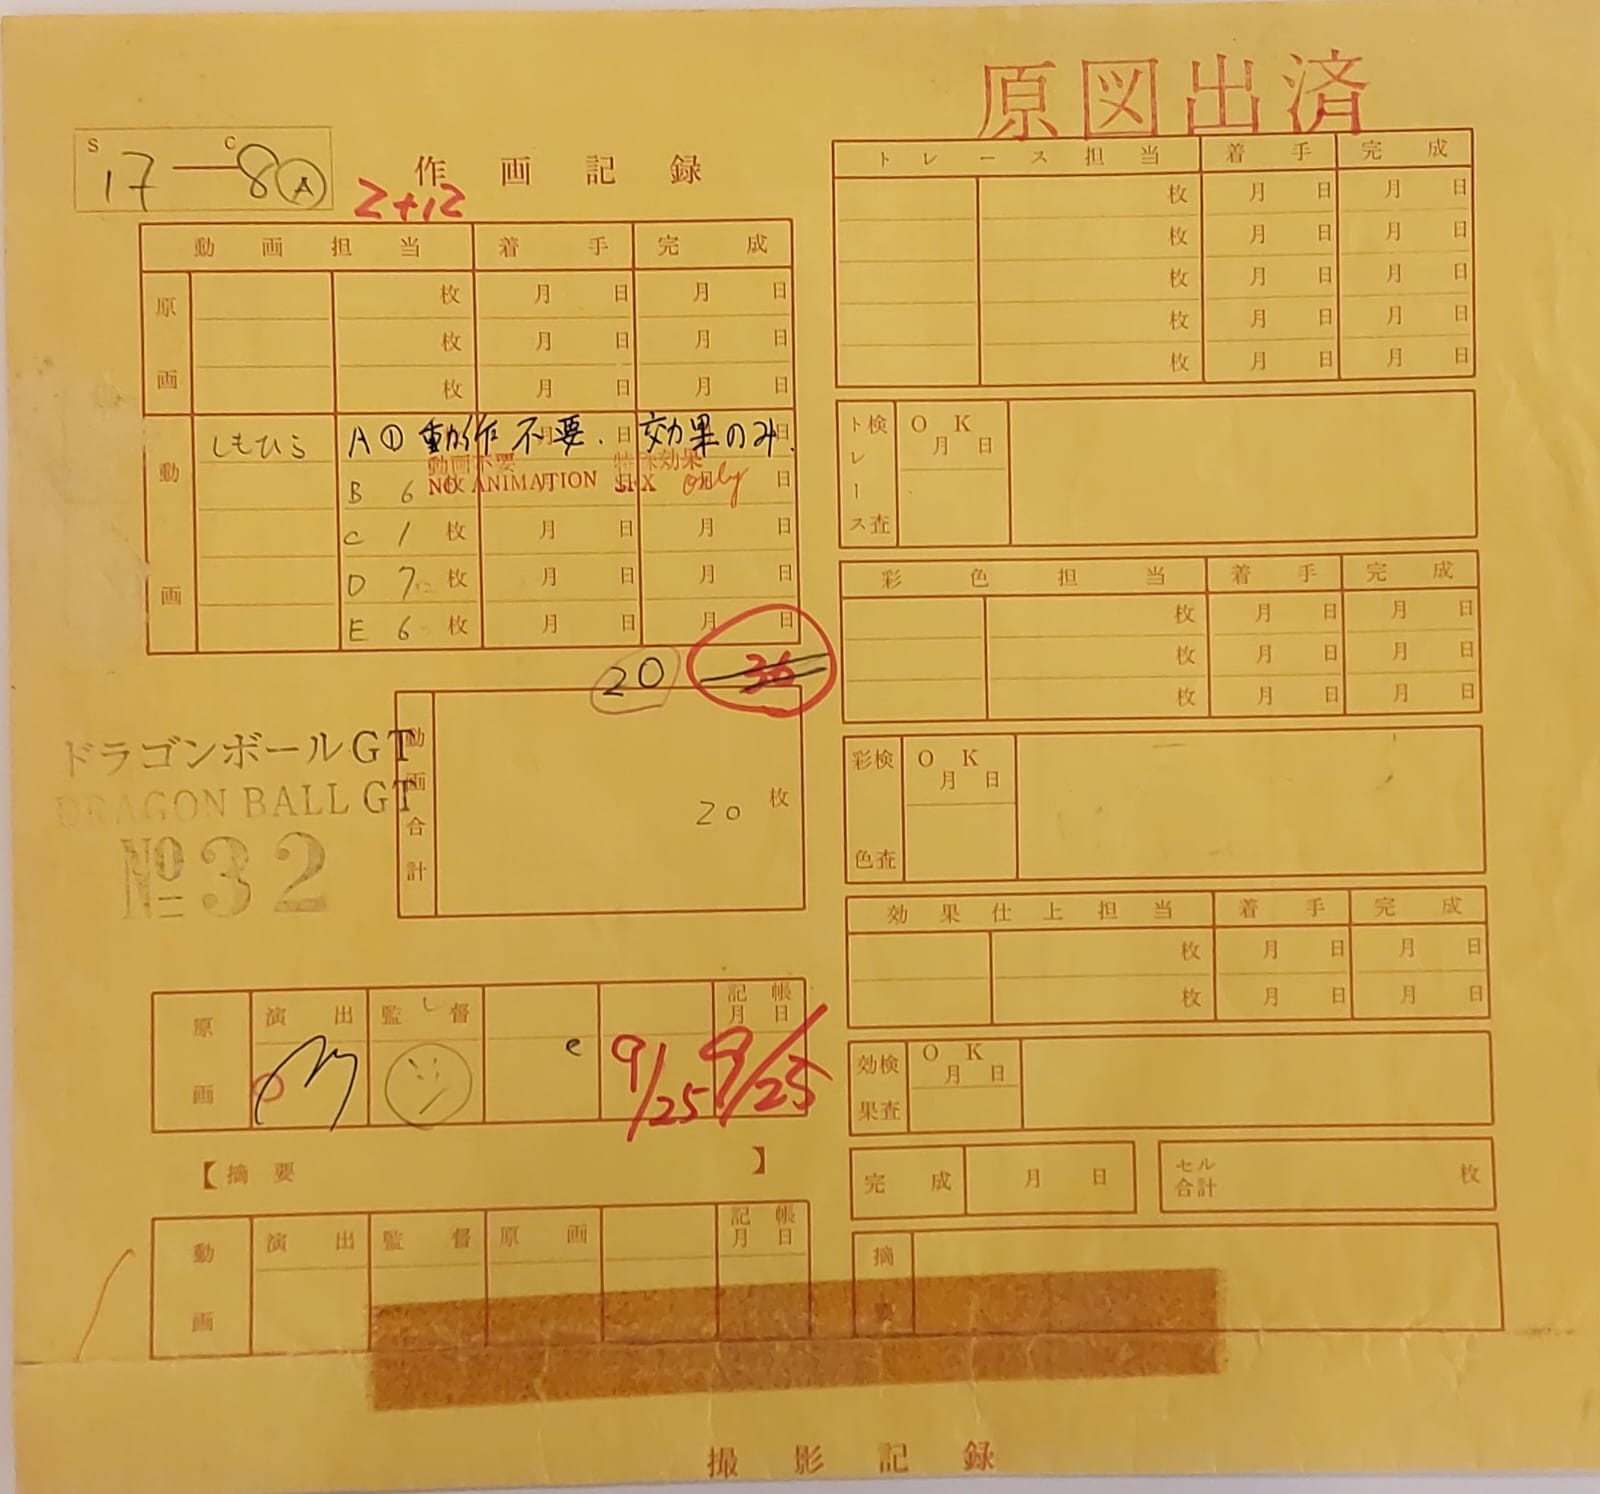 原図出済
S C
17-8 Ⓐ
作画記録
2+12
動画担当 着手 完成
原画
枚 月 日 月 日
枚 月 日 月 日
枚 月 日 月 日
動画
しもひら A① 動作不要. 効果のみ.
月 日 日
動画不要 特殊効果
NO ANIMATION SFX only
B 6 枚 月 日 月 日
C 1 枚 月 日 月 日
D 7 枚 月 日 月 日
E 6 枚 月 日 月 日
20 36
動画合計
20 枚
ドラゴンボールGT
DRAGON BALL GT
No 32
原画 演出 監督 記帳
月 日
e 9/25 9/25
【摘要 】
動画 演出 監督 原画 記帳
月 日
トレース担当 着手 完成
枚 月 日 月 日
枚 月 日 月 日
枚 月 日 月 日
枚 月 日 月 日
枚 月 日 月 日
トレース検査 OK
月 日
彩色担当 着手 完成
枚 月 日 月 日
枚 月 日 月 日
枚 月 日 月 日
彩色検査 OK
月 日
効果仕上担当 着手 完成
枚 月 日 月 日
枚 月 日 月 日
効果検査 OK
月 日
完成 月 日
セル合計 枚
摘要
撮影記録